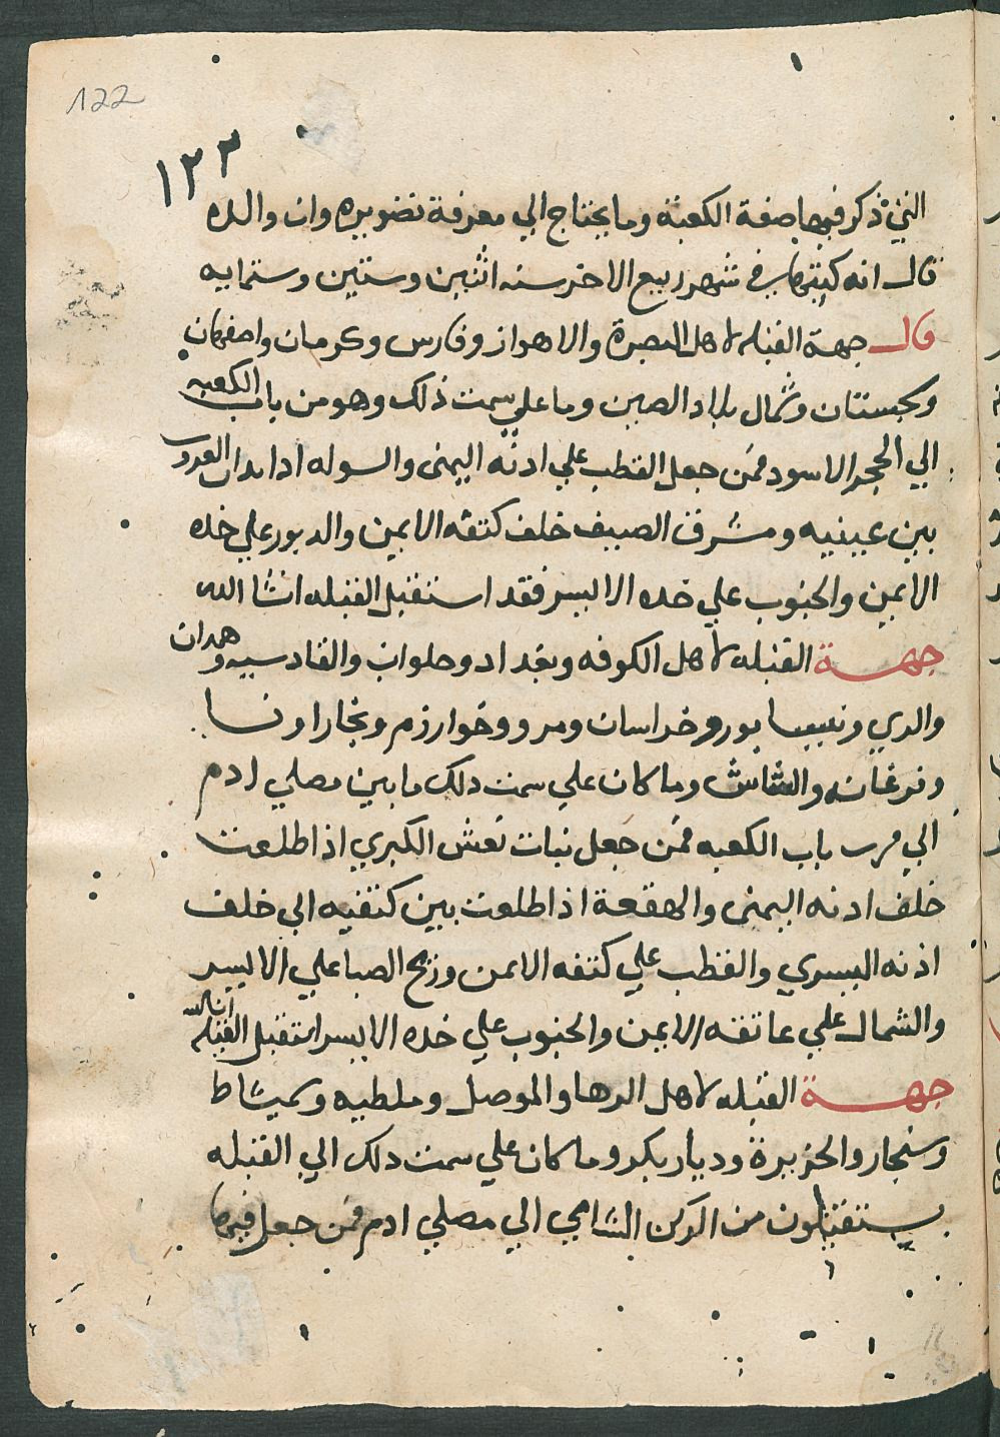 122
١٢٢
التي ذكر فيها صفة الكعبة وما يحتاج الي معرفة تصويره وان والده
قال انه كتبها في شهر ربيع الاخر سنه اثنين وستين وستمايه
قال جهة القبله لاهل البصرة والاهواز وفارس وكرمان واصفهان
وسجستان وشمال بلاد الصين وما علي سمت ذلك وهو من باب الكعبه
الي الحجر الاسود فمن جعل القطب علي ادنه اليمنى والسوله ادا
بين عينيه ومشرق الصيف خلف كتفه الايمن والدبور علي خده
الايمن والجنوب علي خده الايسر فقد استقبل القبله انشا الله
جهة القبله لاهل الكوفه وبغداد وحلوان والقادسيه وهمدان
والري ونيسابور وخراسان ومرو وخوارزم وبخارا ونسا
وفرغانه والشاش وما كان علي سمت دلك ما بين مصلي ادم
الي قرب باب الكعبه فمن جعل نبات نعش الكبري اذا طلعت
خلف ادنه اليمنى والهقعة اذا طلعت بين كتفيه الي خلف
اذنه اليسري والقطب علي كتفه الايمن وريح الصبا علي الايسر
والشمال علي عاتقه الايمن والجنوب علي خده الايسر استقبل القبله
جهة القبله لاهل الرها والموصل وملطيه وسميشاط
وسنجار والجزيرة وديار بكر وما كان علي سمت دلك الي القبله
يستقبلون من الركن الشامي الي مصلي ادم فمن جعل فيها